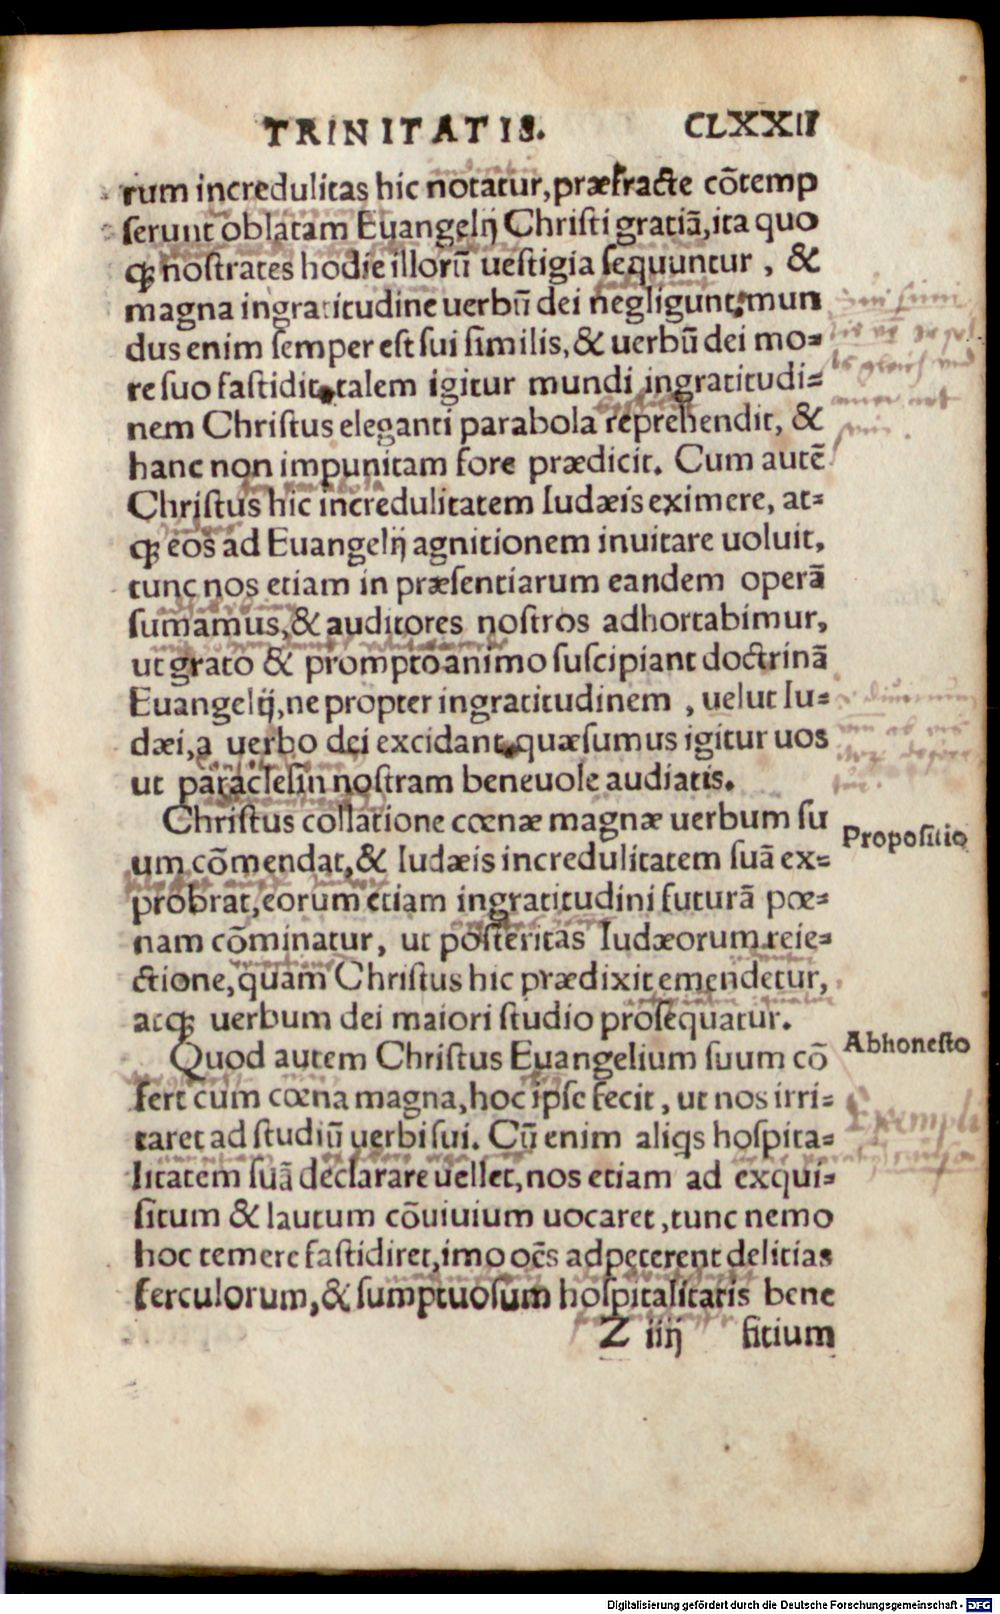 TRINITATIS. CLXXII
rum incredulitas hic notatur, præfracte cõtemp
serunt oblatam Euangelij Christi gratiã, ita quo
qꝫ nostrates hodie illorũ uestigia sequuntur, &
magna ingratitudine uerbũ dei negligunt, mun
dus enim semper est sui similis, & uerbũ dei mo=
re suo fastidit, talem igitur mundi ingratitudi=
nem Christus eleganti parabola reprehendit, &
hanc non impunitam fore prædicit. Cum autẽ
Christus hic incredulitatem Iudæis eximere, at=
qꝫ eos ad Euangelij agnitionem inuitare uoluit,
tunc nos etiam in præsentiarum eandem operã
sumamus, & auditores nostros adhortabimur,
ut grato & prompto animo suscipiant doctrinã
Euangelij, ne propter ingratitudinem, uelut Iu=
dæi, a uerbo dei excidant, quæsumus igitur uos
ut paraclesin nostram beneuole audiatis.
Christus collatione cœnæ magnæ uerbum su
um cõmendat, & Iudæis incredulitatem suã ex=
probrat, eorum etiam ingratitudini futurã pœ=
nam cõminatur, ut posteritas Iudæorum reie=
ctione, quam Christus hic prædixit emendetur,
atqꝫ uerbum dei maiori studio prosequatur.
Quod autem Christus Euangelium suum cõ
fert cum cœna magna, hoc ipse fecit, ut nos irri=
taret ad studiũ uerbi sui. Cũ enim aliqs hospita=
litatem suã declarare uellet, nos etiam ad exqui=
situm & lautum cõuiuium uocaret, tunc nemo
hoc temere fastidiret, imo oẽs adpeterent delicias
ferculorum, & sumptuosum hospitalitatis bene
Z iiij fitium
Propositio
Ab honesto
Digitalisierung gefördert durch die Deutsche Forschungsgemeinschaft - DFG